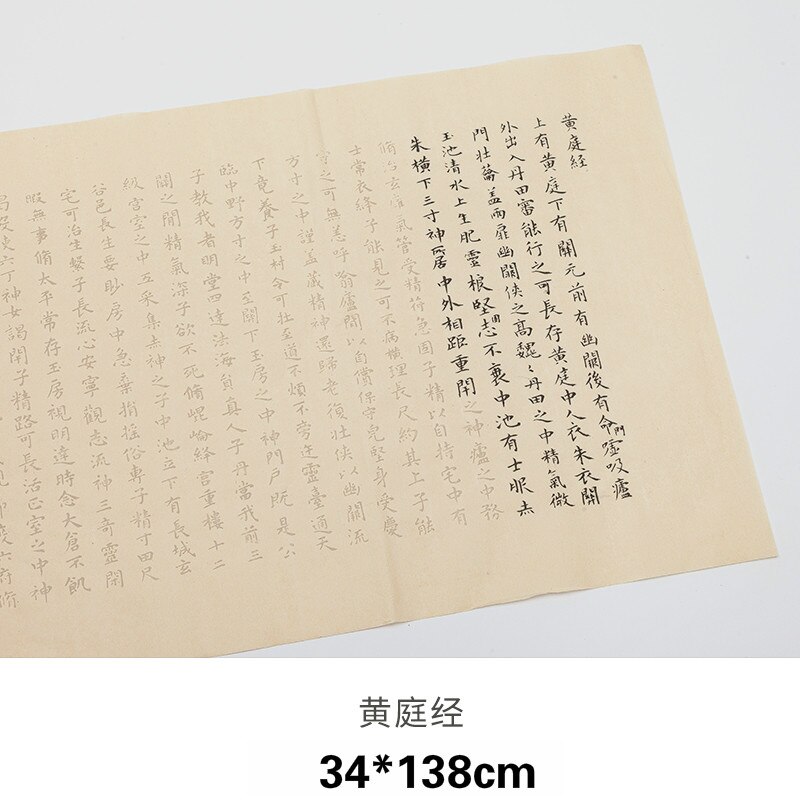 黄庭经
上有黄庭下有關元前有幽闕後有命門噓吸廬
外出入丹田審能行之可長存黄庭中人衣朱衣關
門壮蘥盖兩扉幽闕俠之高魏〻丹田之中精氣微
玉池清水上生肥靈根堅固志不衰中池有士服赤
朱橫下三寸神所居中外相距重閇之神廬之中務
脩治玄氣管受精符急固子精以自持宅中有
士常衣絳子能見之可不病橫理長尺約其上子能
守之可無恙呼噏廬間以自償保守完堅身受慶
方寸之中謹盖藏精神還歸老復壮俠以幽闕流
下竟養子玉樹令可壮至道不煩不旁迕靈臺通天
臨中野方寸之中至關下玉房之中神門户既是公
子教我者明堂四達法海負真人子丹當我前三
關之間精氣深子欲不死脩崐崘絳宮重樓十二
級宮室之中五采集赤神之子中池立下有長城玄
谷邑長生要眇房中急棄捐搖俗專子精寸田尺
宅可治生繫子長流心安寧觀志流神三奇靈閑
暇無事脩太平常存玉房視明達時念大倉不飢
渴役使六丁神女謁閇子精路可長活正室之中神
黄庭经
34*138cm